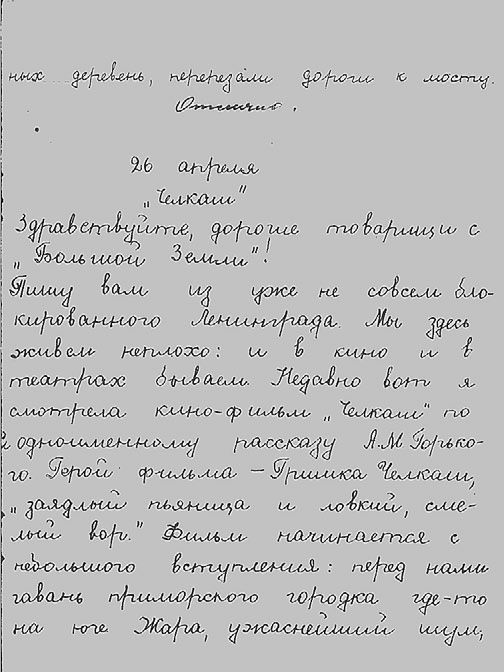 ных деревень, перерезали дороги к мосту.
Отлично.
26 апреля
„Челкаш"
Здравствуйте, дорогие товарищи с
„Большой Земли"!
Пишу вам из уже не совсем бло-
кированного Ленинграда. Мы здесь
живем неплохо: и в кино и в
театрах бываем. Недавно вот я
смотрела кино-фильм „Челкаш" по
одноименному рассказу А.М Горько-
го. Герой фильма – Гришка Челкаш,
„заядлый пьяница и ловкий, сме-
лый вор." Фильм начинается с
небольшого вступления: перед нами
гавань приморского городка где-то
на юге. Жара, ужаснейший шум,